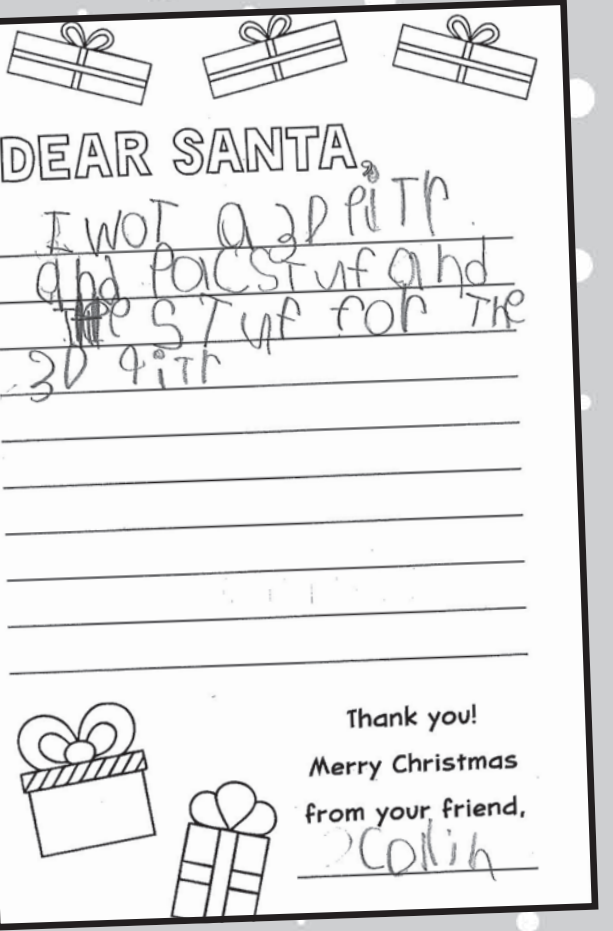 DEAR SANTA,
I WOT a 3D PiTr
and PacSTuf and
The STuf for The
3D PiTr
Thank you!
Merry Christmas
from your friend,
Collin